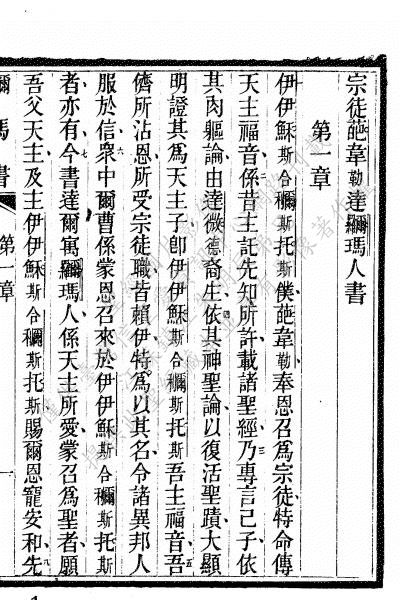 宗徒葩韋勒達羅瑪人書
第一章
伊伊穌斯合穪斯托斯僕葩韋勒奉恩召爲宗徒特命傳
天主福音二係昔主託先知所許載諸聖經三乃專言己子依
其肉軀論由達微德裔生四依其神聖論以復活聖蹟大顯
明證其爲天主子卽伊伊穌斯合穪斯托斯吾主福音五吾
儕所沾恩所受宗徒職皆賴伊特爲以其名令諸異邦人
服於信六衆中爾曹係蒙恩召來於伊伊穌斯合穪斯托斯
者亦有今七書達爾寓羅瑪人係天主所愛蒙召爲聖者願
吾父天主及主伊伊穌斯合穪斯托斯賜爾恩寵安和八先
瑪書
第一章
一
1